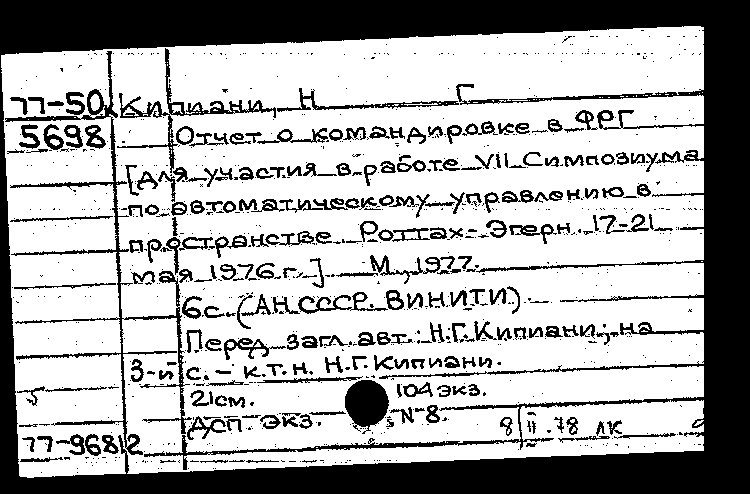 77-50 Кипиани, Н Г
5698 Отчет о командировке в ФРГ
[для участия в работе VII Симпозиума
по автоматическому управлению в
пространстве. Роттах-Эгерн. 17-21
мая 1976г.] М., 1977.
6с. (АН СССР. ВИНИТИ)
Перед загл. авт.: Н.Г. Кипиани; на
3-й с. - к.т.н. Н.Г. Кипиани.
21см. 104 экз.
ДСП. экз. N 8.
77-96812 8/II.78 ЛК